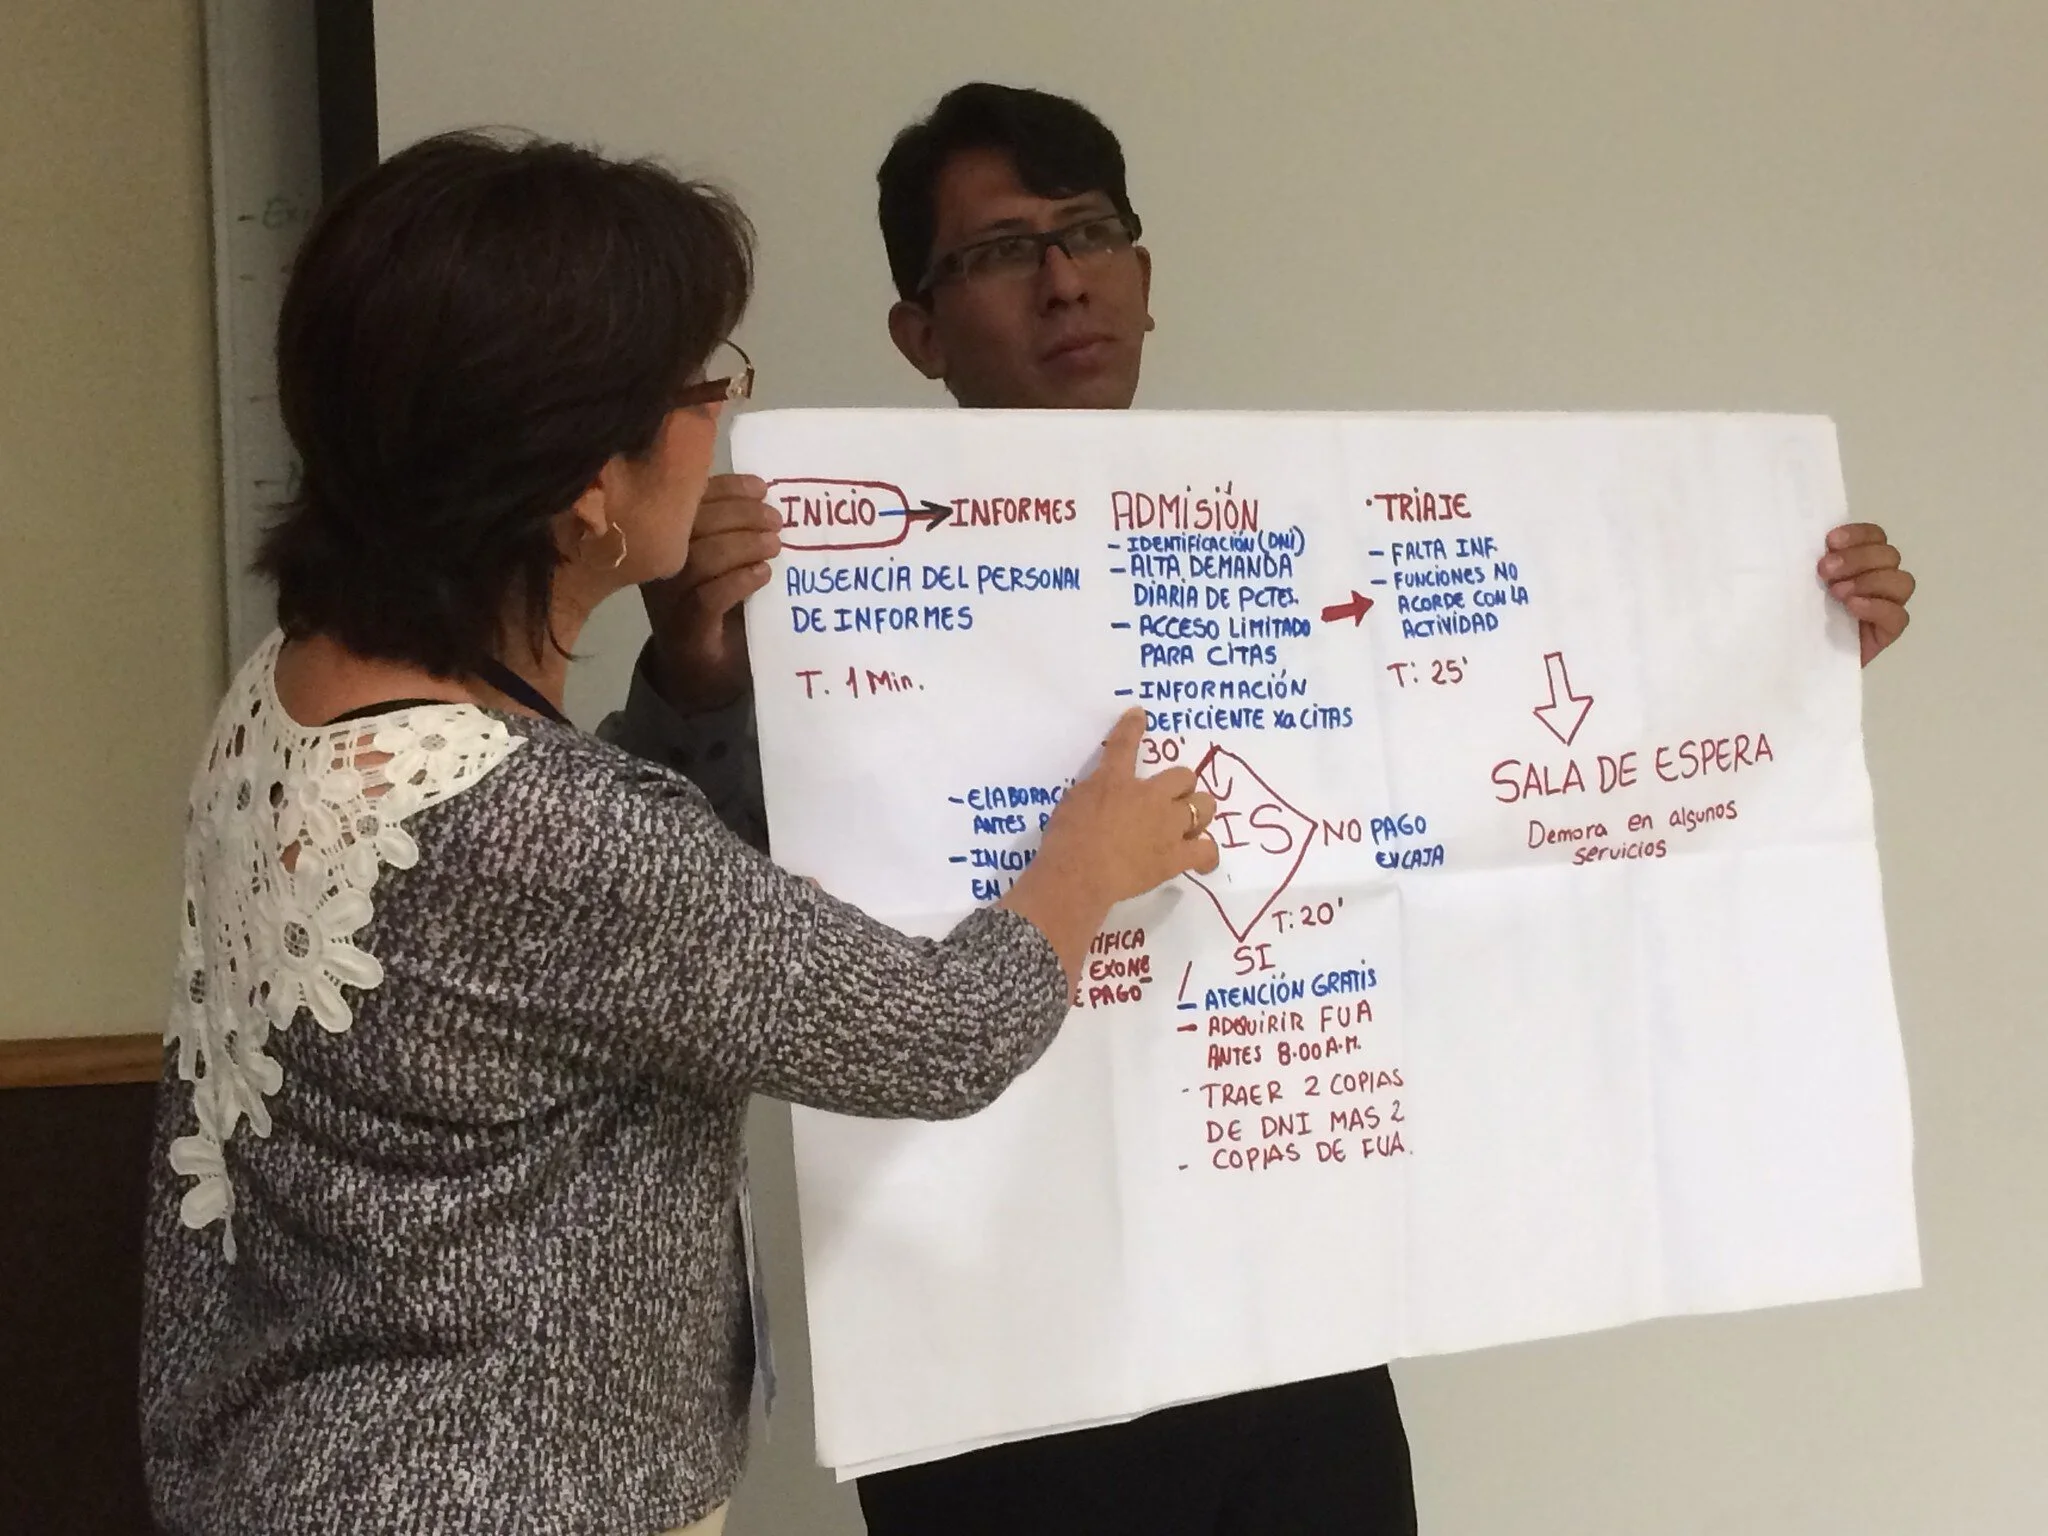 INICIO → INFORMES
AUSENCIA DEL PERSONAL
DE INFORMES
T. 1 Min.
ADMISIÓN
- IDENTIFICACIÓN (DNI)
- ALTA DEMANDA
DIARIA DE PCTES.
- ACCESO LIMITADO
PARA CITAS
- INFORMACIÓN
DEFICIENTE xa CITAS
30'
· TRIAJE
- FALTA INF.
- FUNCIONES NO
ACORDE CON LA
ACTIVIDAD
T: 25'
SALA DE ESPERA
Demora en algunos
servicios
ANTES
EN
IS
NO PAGO
EN CAJA
T: 20'
SI
EXONE
PAGO
- ATENCIÓN GRATIS
- ADQUIRIR FUA
ANTES 8.00 A.M.
- TRAER 2 COPIAS
DE DNI MAS 2
- COPIAS DE FUA.